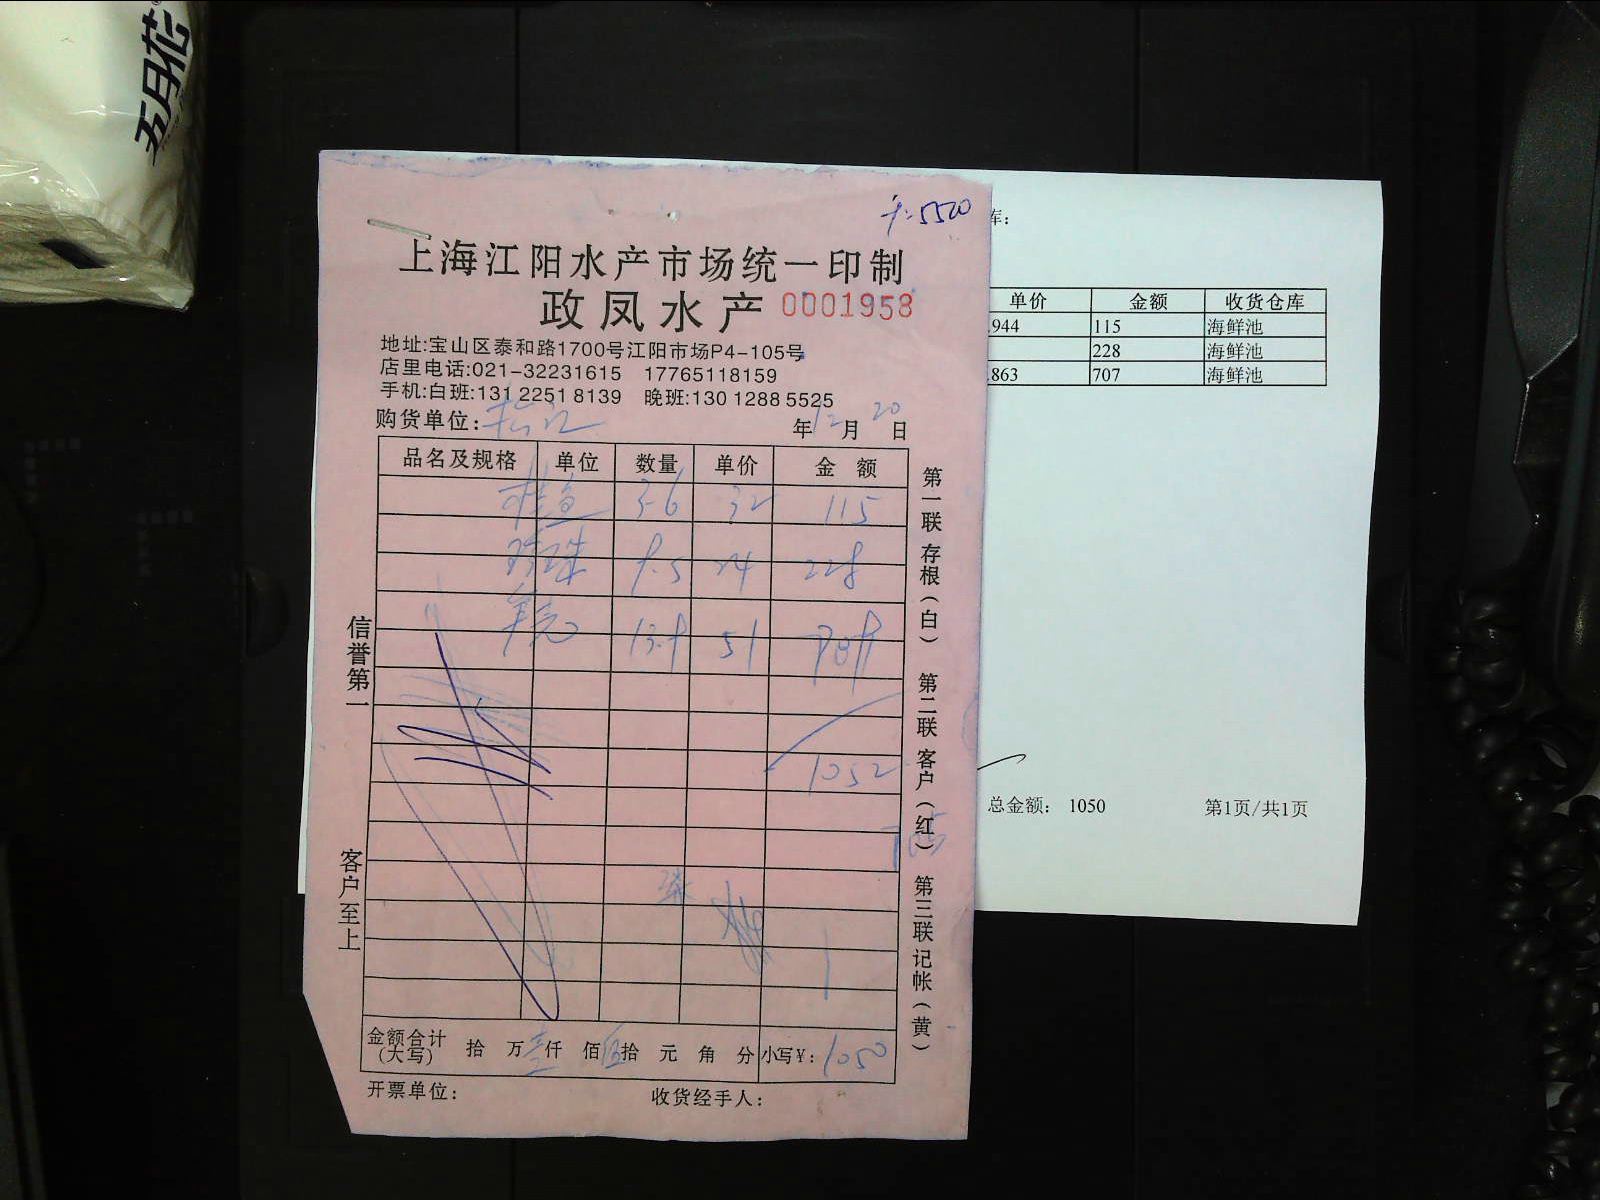 五月花
5520
库:
上海江阳水产市场统一印制
政凤水产 0001958
地址:宝山区泰和路1700号江阳市场P4-105号
店里电话:021-32231615 17765118159
手机:白班:131 2251 8139 晚班:130 1288 5525
购货单位: 松江 年12月20日
品名及规格 单位 数量 单价 金额
桂鱼 3.6 32 115
珍珠 9.5 24 228
13.9 51 709
1052
705
金额合计(大写) 拾 万壹仟 佰伍拾 元 角 分 小写¥: 1050
开票单位: 收货经手人:
信誉第一
客户至上
第一联 存根(白) 第二联 客户(红) 第三联 记帐(黄)
单价 金额 收货仓库
.944 115 海鲜池
228 海鲜池
.863 707 海鲜池
总金额: 1050 第1页/共1页